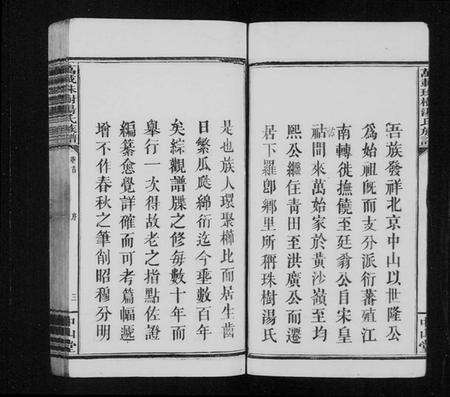 萬載珠樹湯氏族譜
吾族發祥北京中山以世隆公
為始祖旣而支分派衍蕃殖江
南轉徙撫饒至廷翁公自宋皇
祐間來萬始家於黃沙嶺至均
熙公繼住靑田至洪廣公而遷
居下羅卽鄉里所稱珠樹湯氏
中山堂
是也族人環聚櫛比而居生齒
日繁瓜瓞綿衍迄今垂數百年
矣綜觀譜牒之修每數十年而
舉行一次得故老之指點佐證
編纂愈覺詳確而可考篇幅遞
增不作春秋之筆削昭穆分明
萬載珠樹湯氏族譜
卷首 序 三
中山堂